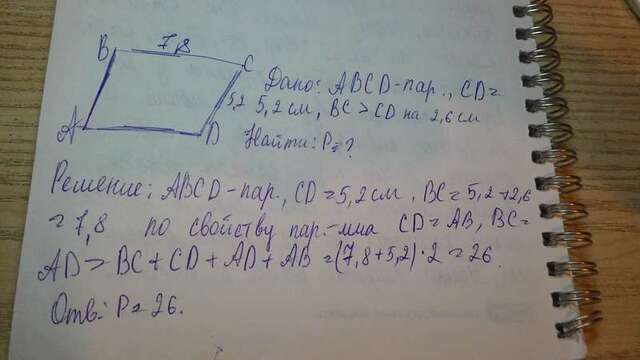 B 7,8 C
Дано: ABCD-пар., CD=
5,2 5,2см, BC > CD на 2,6 см
A D Найти: P=?
Решение: ABCD-пар., CD=5,2см, BC=5,2+2,6
=7,8 по свойству пар.-мма CD=AB, BC=
AD > BC+CD+AD+AB=(7,8+5,2)·2=26.
Отв: P=26.